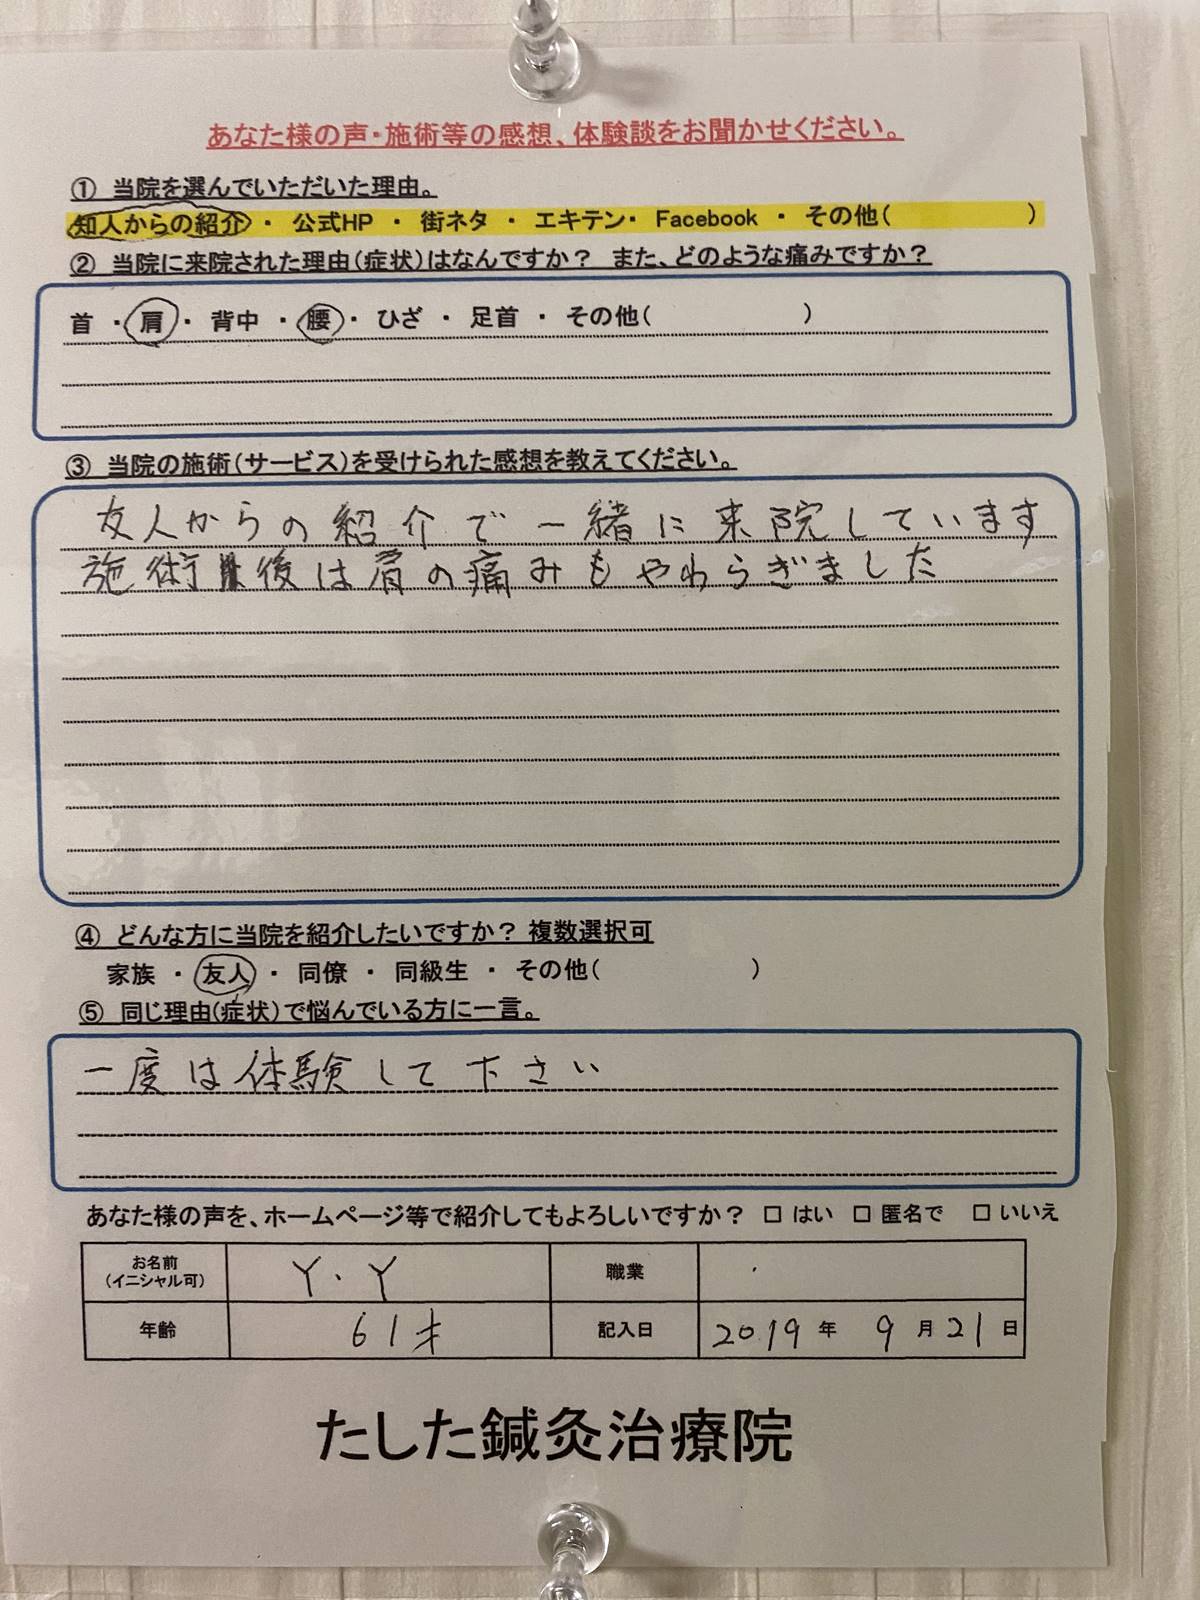 あなた様の声・施術等の感想、体験談をお聞かせください。
① 当院を選んでいただいた理由。
知人からの紹介 ・ 公式HP ・ 街ネタ ・ エキテン・ Facebook ・ その他( )
② 当院に来院された理由(症状)はなんですか? また、どのような痛みですか?
首 ・ 肩 ・ 背中 ・ 腰 ・ ひざ ・ 足首 ・ その他( )
③ 当院の施術(サービス)を受けられた感想を教えてください。
友人からの紹介で一緒に来院しています
施術後は肩の痛みもやわらぎました
④ どんな方に当院を紹介したいですか? 複数選択可
家族 ・ 友人 ・ 同僚 ・ 同級生 ・ その他( )
⑤ 同じ理由(症状)で悩んでいる方に一言。
一度は体験して下さい
あなた様の声を、ホームページ等で紹介してもよろしいですか? □ はい □ 匿名で □ いいえ
お名前
(イニシャル可)
Y.Y
職業
年齢
61才
記入日
2019 年 9 月 21 日
たした鍼灸治療院